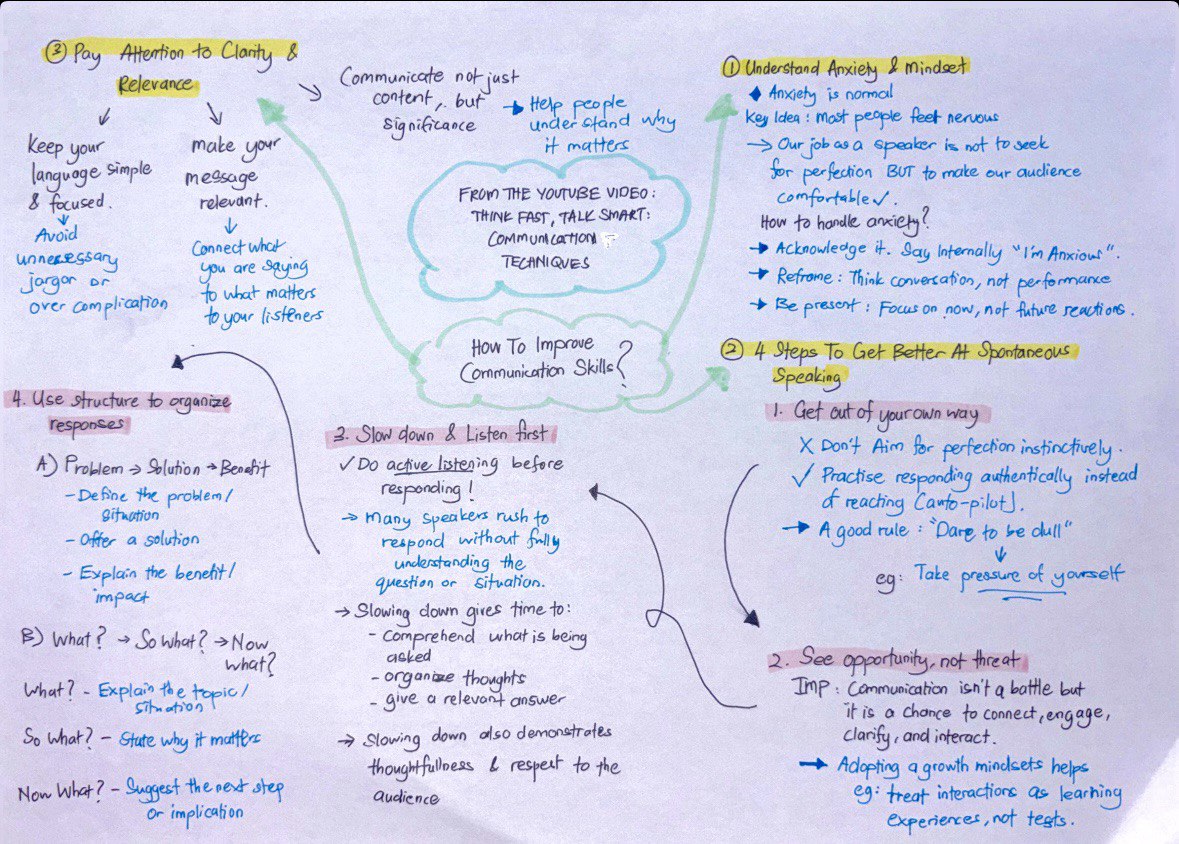 FROM THE YOUTUBE VIDEO:
THINK FAST, TALK SMART:
COMMUNICATION
TECHNIQUES
How To Improve
Communication Skills?
① Understand Anxiety & Mindset
◆ Anxiety is normal
Key Idea: Most people feel nervous
→ Our job as a speaker is not to seek
for perfection BUT to make our audience
comfortable ✓.
How to handle anxiety?
→ Acknowledge it. Say Internally "I'm Anxious".
→ Reframe: Think conversation, not performance
→ Be present: Focus on now, not future reactions.
② 4 Steps To Get Better At Spontaneous
Speaking
1. Get out of your own way
X Don't Aim for perfection instinctively.
✓ Practise responding authentically instead
of reaching (auto-pilot).
→ A good rule: "Dare to be dull"
↓
eg: Take pressure of yourself
2. See opportunity, not threat
IMP: Communication isn't a battle but
it is a chance to connect, engage,
clarify, and interact.
→ Adopting a growth mindsets helps
eg: treat interactions as learning
experiences, not tests.
3. Slow down & Listen first
✓ Do active listening before
responding!
→ Many speakers rush to
respond without fully
understanding the
question or situation.
→ Slowing down gives time to:
- comprehend what is being
asked
- organize thoughts
- give a relevant answer
→ Slowing down also demonstrates
thoughtfullness & respect to the
audience
4. Use structure to organize
responses
A) Problem → Solution → Benefit
- Define the problem/
situation
- Offer a solution
- Explain the benefit/
impact
B) What? → So What? → Now
What?
What? - Explain the topic/
situation
So What? - State why it matters
Now What? - Suggest the next step
or implication
③ Pay Attention to Clarity &
Relevance
Keep your
language simple
& focused.
↓
Avoid
unnecessary
jargor or
over complication
make your
message
relevant.
↓
Connect what
you are saying
to what matters
to your listeners
Communicate not just
content, but
significance
→ Help people
understand why
it matters